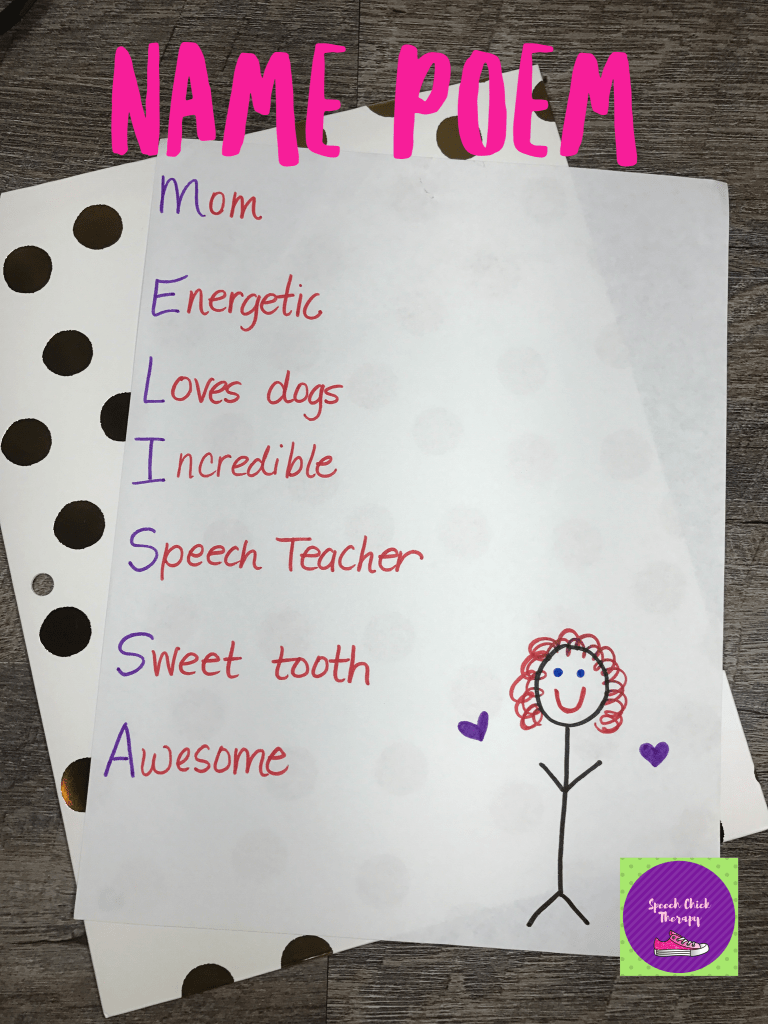 NAME POEM
Mom
Energetic
Loves dogs
Incredible
Speech Teacher
Sweet tooth
Awesome
Speech Chick
Therapy